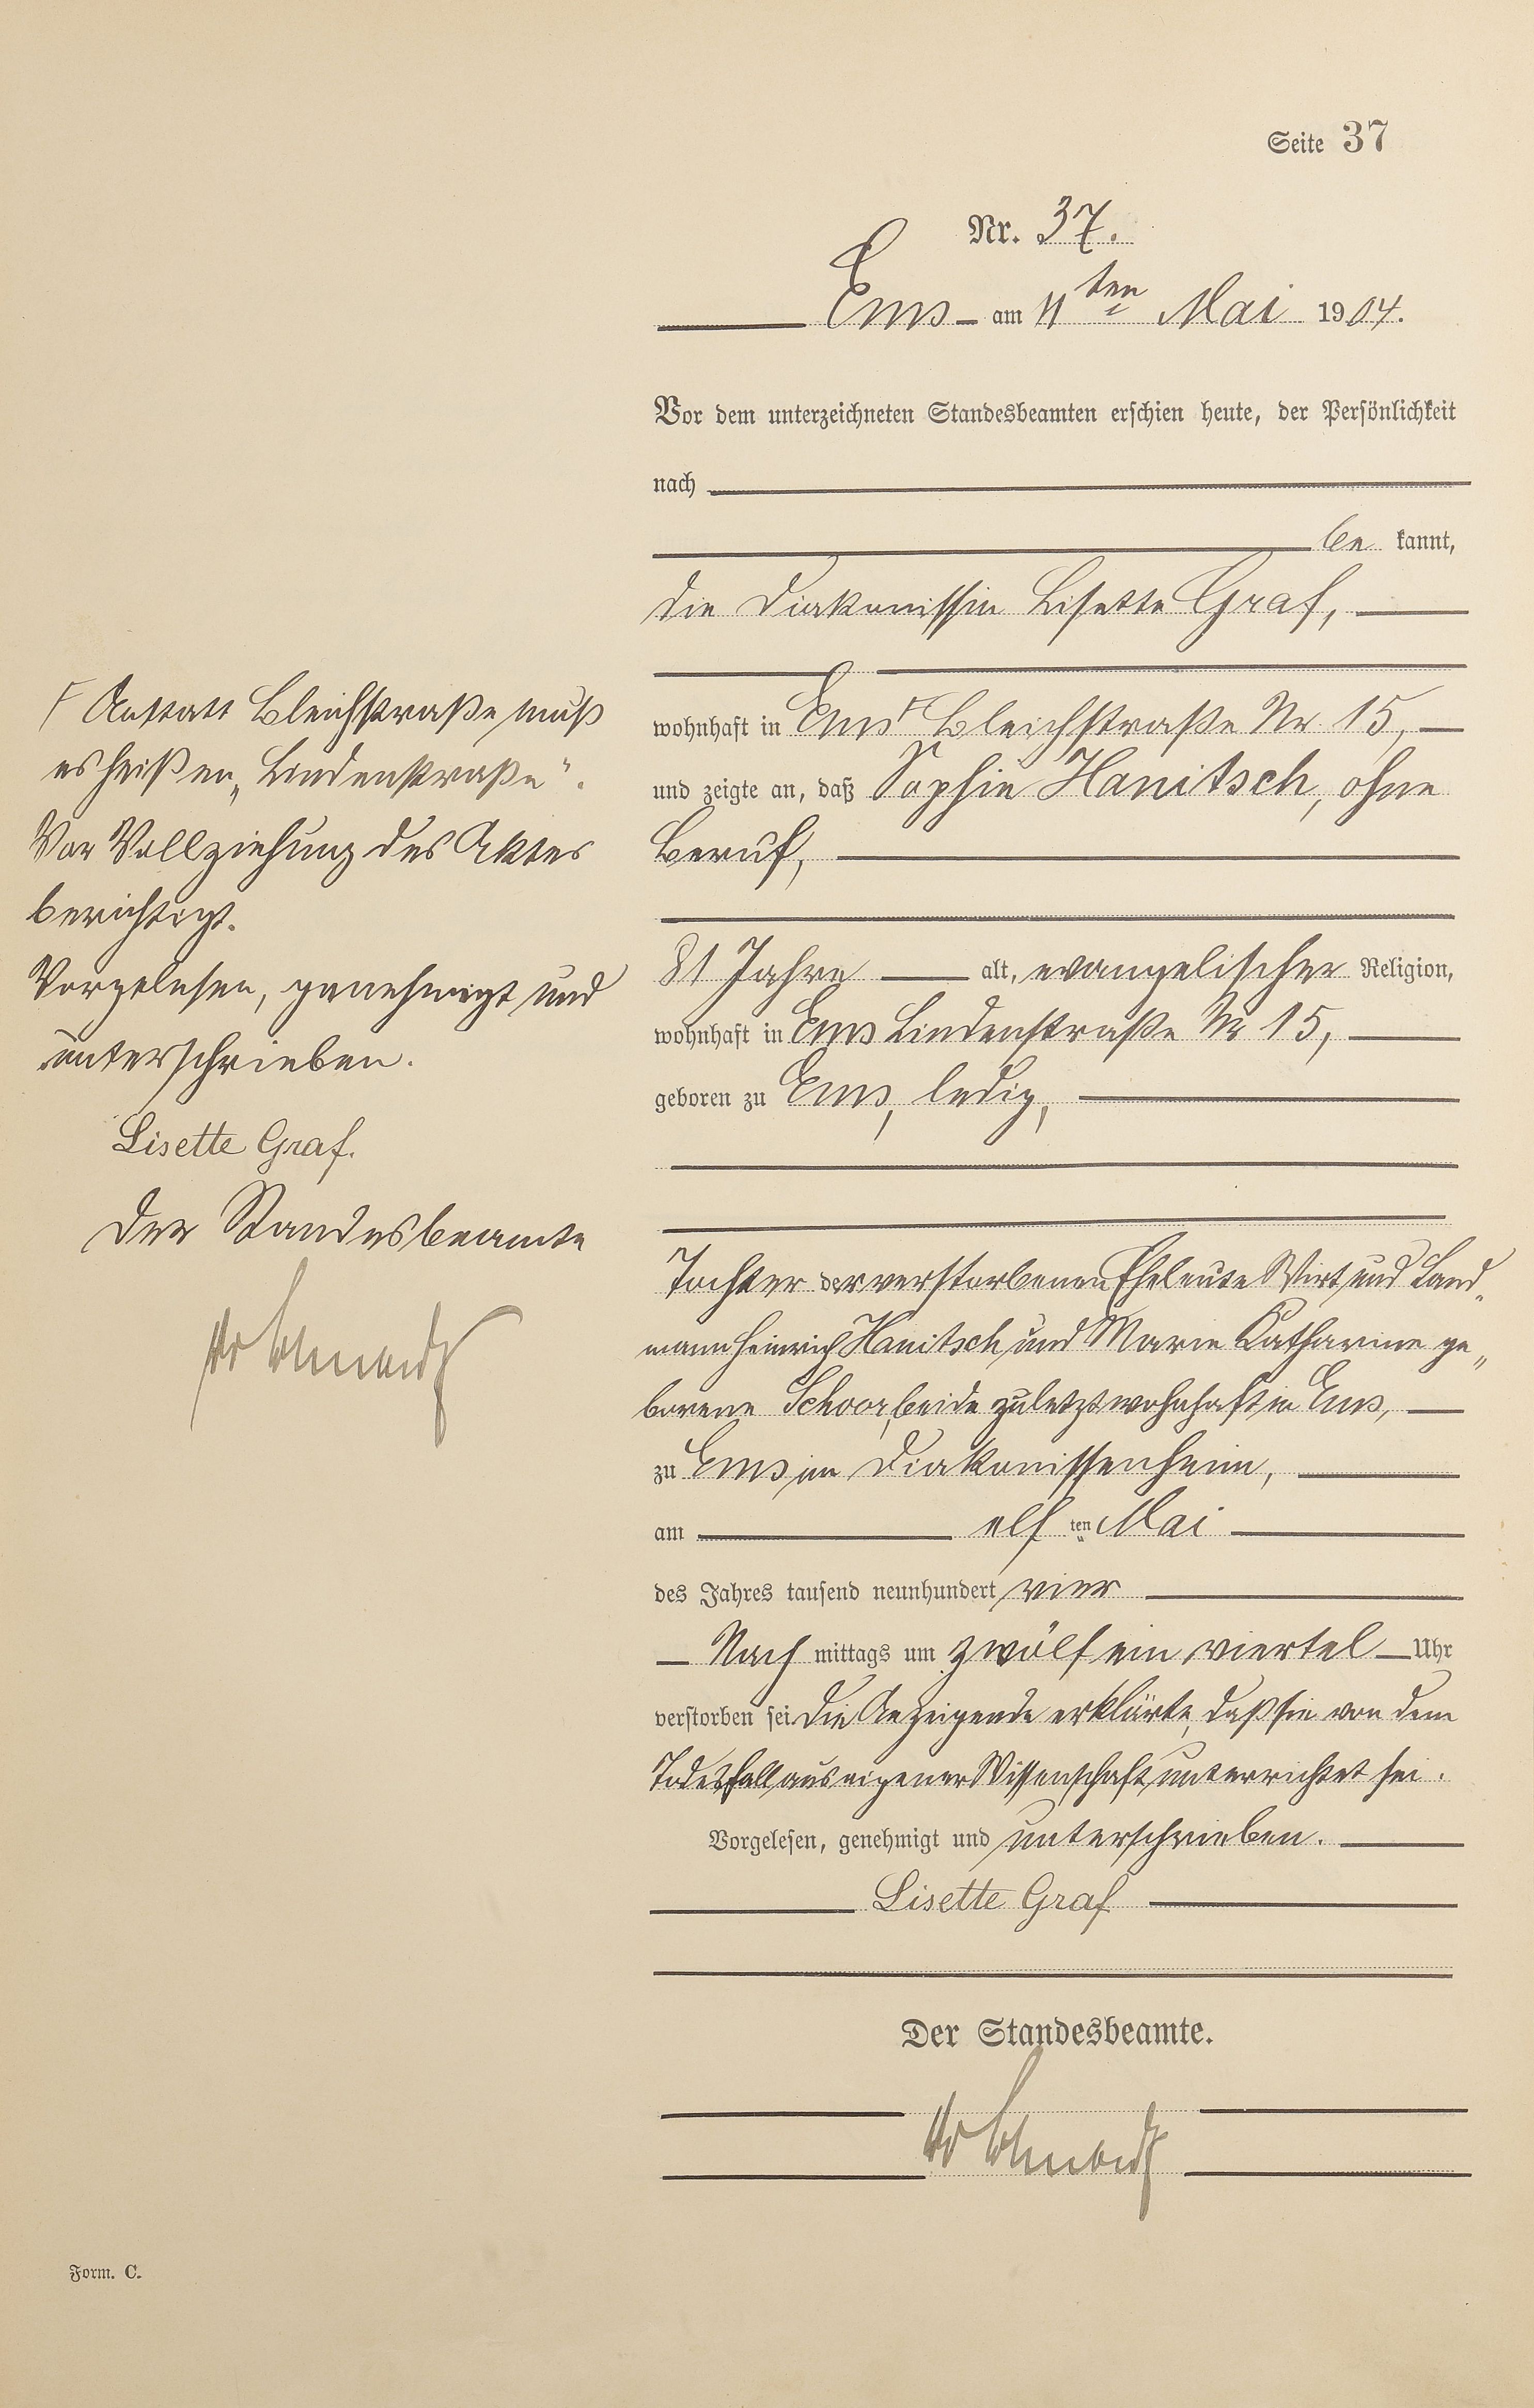 Seite 37
Nr. 37.
Ems am 11ten Mai 1904.
Vor dem unterzeichneten Standesbeamten erschien heute, der Persönlichkeit
nach
be kannt,
die Diakonissin Lisette Graf,
wohnhaft in Ems ⌈ Bleichstraße Nr. 15,
und zeigte an, daß Sophie Hanitsch, ohne
Beruf,
81 Jahre alt, evangelischer Religion,
wohnhaft in Ems Lindenstraße Nr 15,
geboren zu Ems, ledig,
Tochter der verstorbenen Eheleute Wirt und Land„
mann Heinrich Hanitsch und Marie Katharine ge„
borene Schoor, beide zuletzt wohnhaft in Ems,
zu Ems im Diakonissenheim,
am elf ten Mai
des Jahres tausend neunhundert vier
Nach mittags um zwölf ein viertel Uhr
verstorben sei. Die Anzeigende erklärte, daß sie von dem
Todesfall aus eigener Wissenschaft unterrichtet sei.
Vorgelesen, genehmigt und unterschrieben.
Lisette Graf
Der Standesbeamte.
⌈ Anstatt Bleichstraße muß
es heißen „Lindenstraße“.
Vor Vollziehung des Aktes
berichtigt.
Vorgelesen, genehmigt und
unterschrieben.
Lisette Graf.
Der Standesbeamte
Form. C.